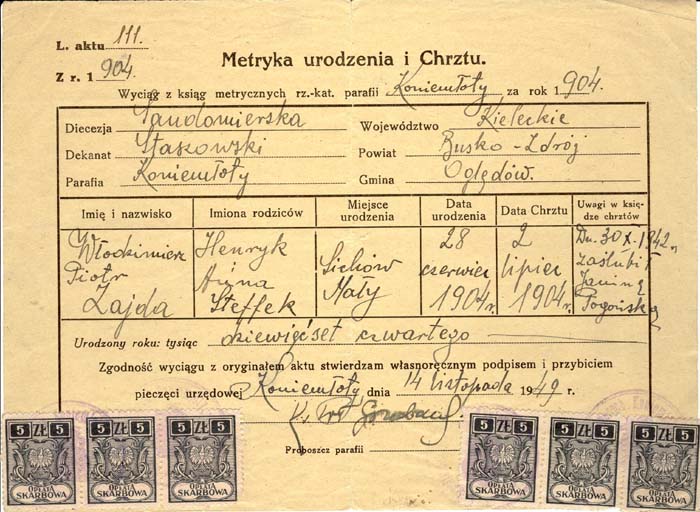 L. aktu 111.
Z r. 1904.
Metryka urodzenia i Chrztu.
Wyciąg z ksiąg metrycznych rz.-kat. parafii Koniemłoty za rok 1904.
Diecezja Sandomierska Województwo Kieleckie
Dekanat Staszowski Powiat Busko-Zdrój
Parafia Koniemłoty Gmina Oględów.
Imię i nazwisko Imiona rodziców Miejsce urodzenia Data urodzenia Data Chrztu Uwagi w księdze chrztów
Włodzimierz Henryk Sichów 28 2 Dn. 30 X. 1942 r.
Piotr Anna Mały czerwiec lipiec zaślubił
Zajda Steffek 1904 r. 1904 r. Janinę
Pogońską
Urodzony roku: tysiąc dziewięćset czwartego
Zgodność wyciągu z oryginałem aktu stwierdzam własnoręcznym podpisem i przybiciem
pieczęci urzędowej Koniemłoty dnia 14 listopada 1949 r.
Proboszcz parafii
5 ZŁ 5 5 ZŁ 5 5 ZŁ 5 5 ZŁ 5 5 ZŁ 5 5 ZŁ 5
OPŁATA SKARBOWA OPŁATA SKARBOWA OPŁATA SKARBOWA OPŁATA SKARBOWA OPŁATA SKARBOWA OPŁATA SKARBOWA